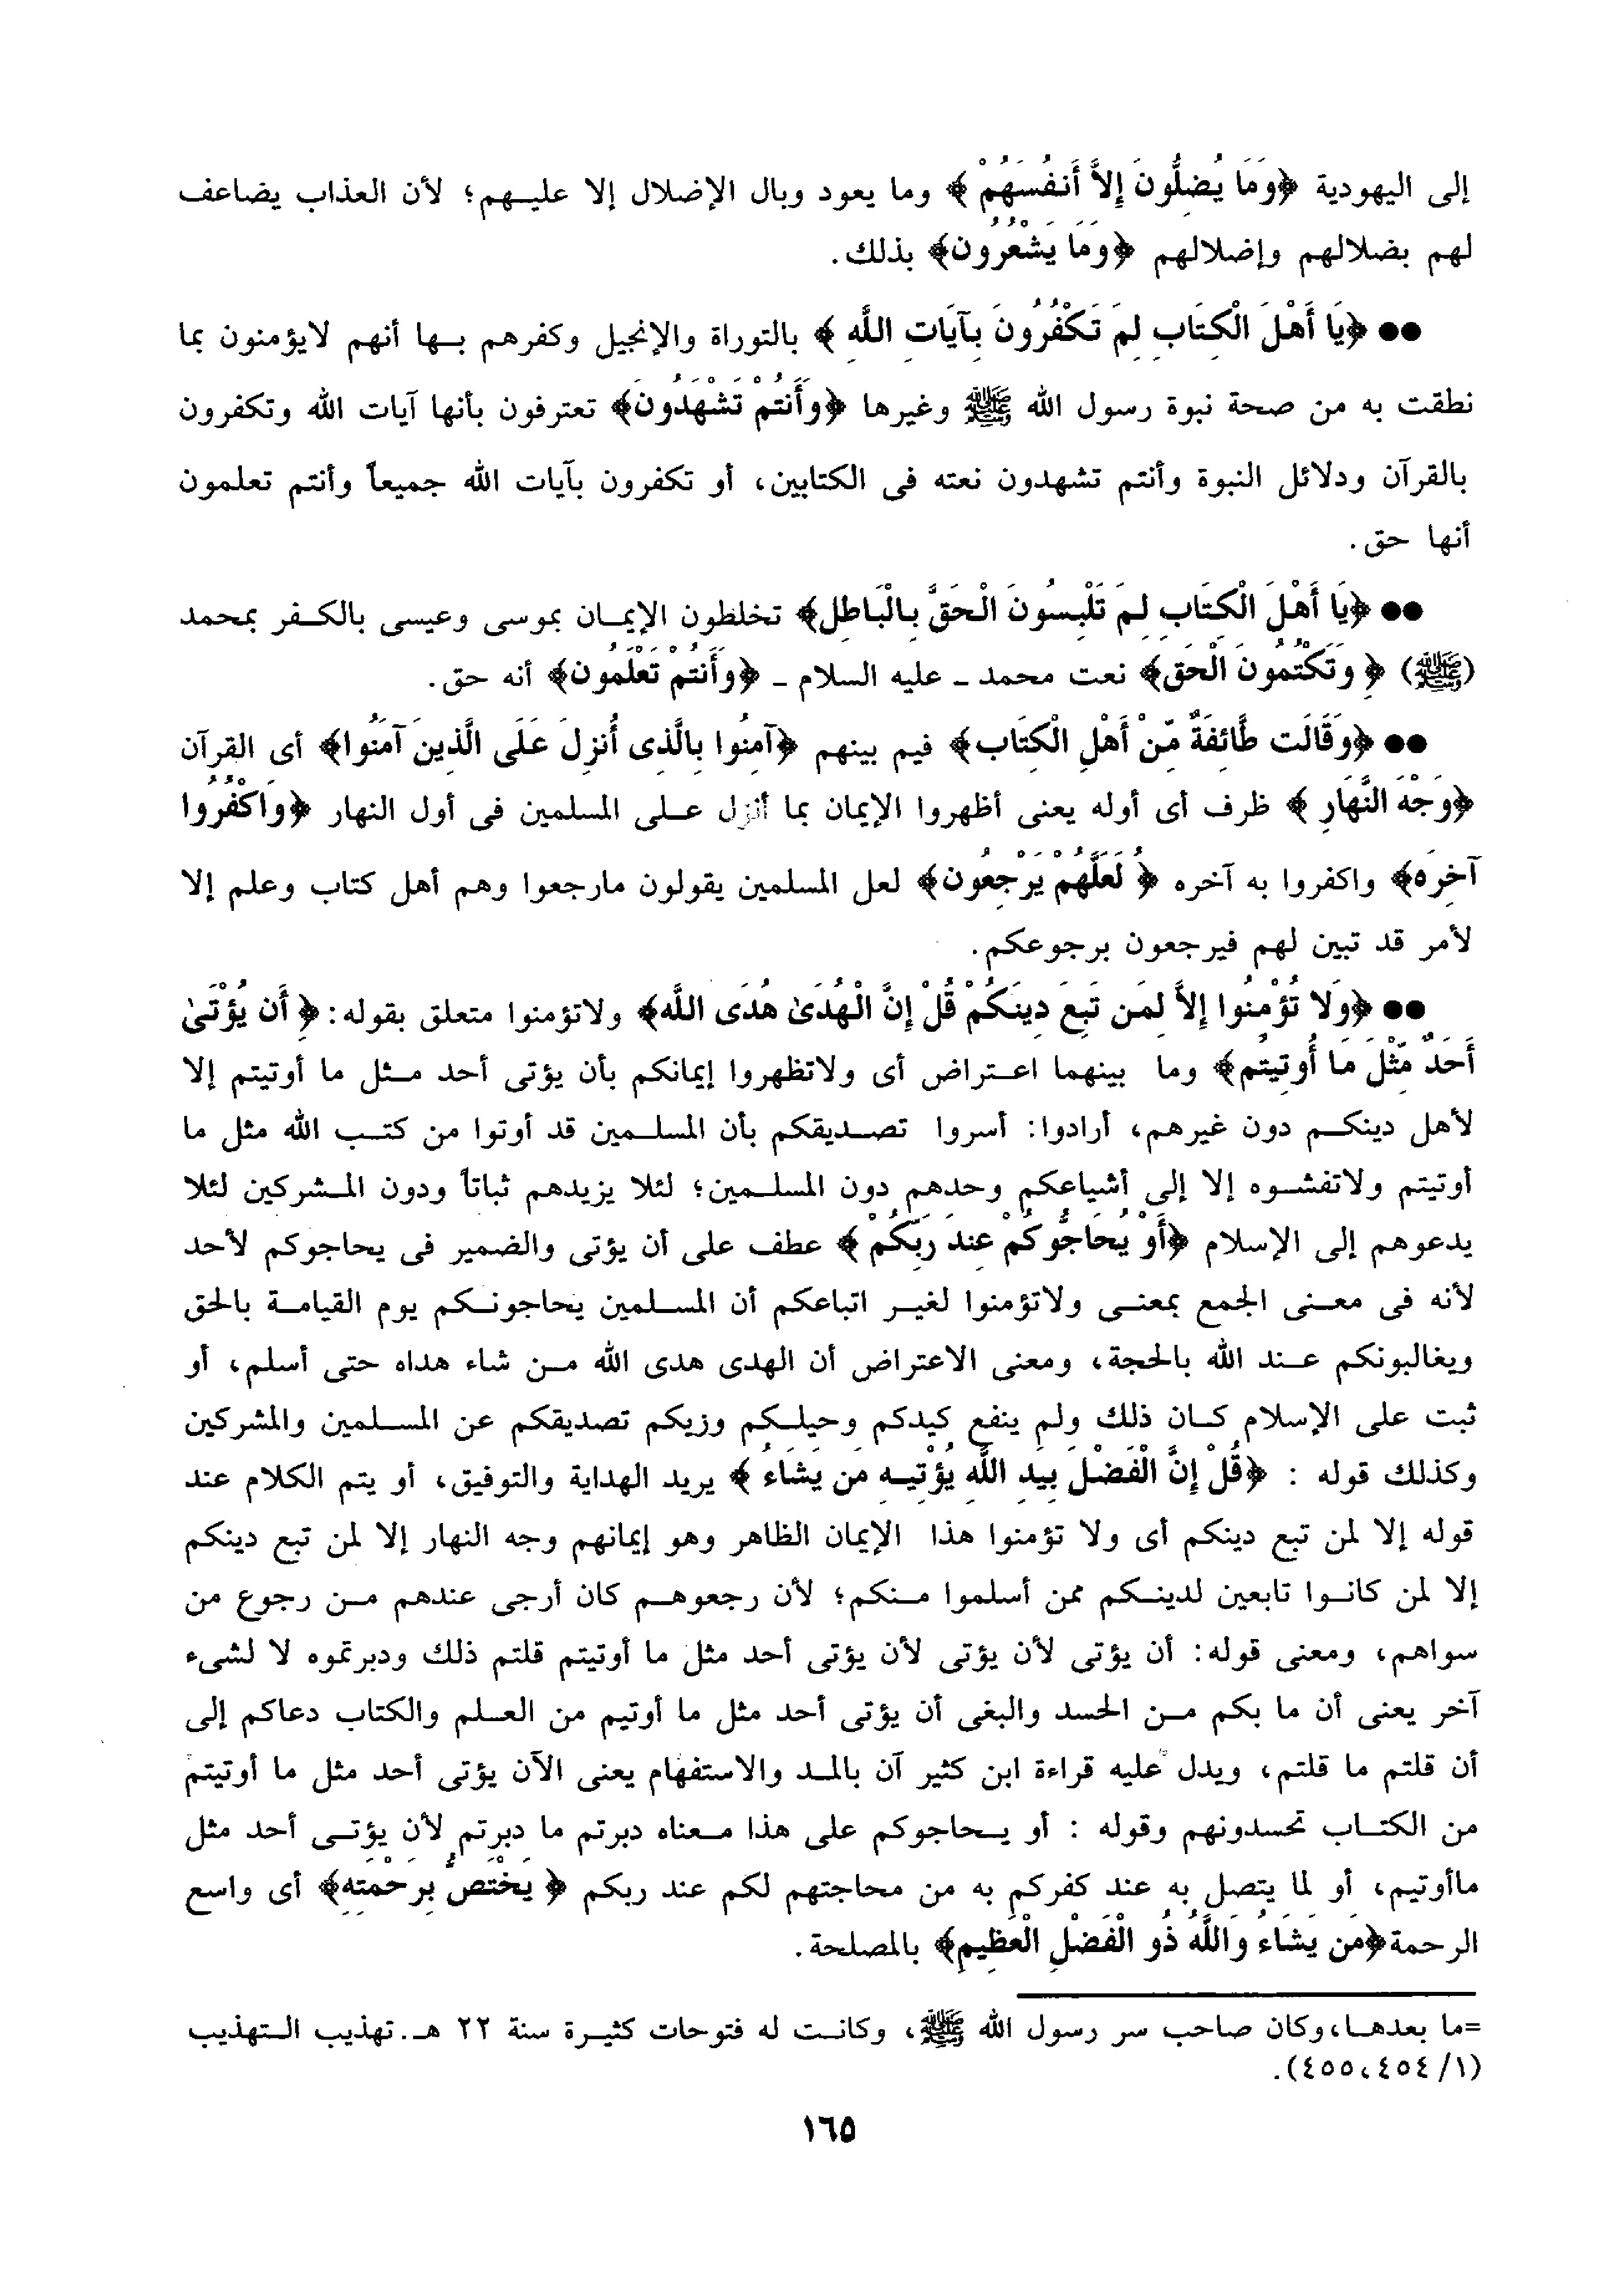 إلى اليهودية ﴿وَمَا يُضِلُّونَ إِلاَّ أَنفُسَهُمْ ﴾ وما يعود وبال الإضلال إلا عليهم؛ لأن العذاب يضاعف
لهم بضلالهم وإضلالهم ﴿وَمَا يَشْعُرُونَ﴾ بذلك.
●● ﴿يَا أَهْلَ الْكِتَابِ لِمَ تَكْفُرُونَ بِآيَاتِ اللَّهِ ﴾ بالتوراة والإنجيل وكفرهم بها أنهم لايؤمنون بما
نطقت به من صحة نبوة رسول الله ﷺ وغيرها ﴿وَأَنتُمْ تَشْهَدُونَ﴾ تعترفون بأنها آيات الله وتكفرون
بالقرآن ودلائل النبوة وأنتم تشهدون نعته فى الكتابين، أو تكفرون بآيات الله جميعاً وأنتم تعلمون
أنها حق.
●● ﴿يَا أَهْلَ الْكِتَابِ لِمَ تَلْبِسُونَ الْحَقَّ بِالْبَاطِلِ﴾ تخلطون الإيمان بموسى وعيسى بالكفر بمحمد
(ﷺ) ﴿ وَتَكْتُمُونَ الْحَق﴾ نعت محمد ـ عليه السلام ـ ﴿وَأَنتُمْ تَعْلَمُون﴾ أنه حق.
●● ﴿وَقَالَت طَّائِفَةٌ مِّنْ أَهْلِ الْكِتَاب﴾ فيم بينهم ﴿آمِنُوا بِالَّذِى أُنزِلَ عَلَى الَّذِينَ آمَنُوا﴾ أى القرآن
﴿وَجْهَ النَّهَارِ ﴾ ظرف أى أوله يعنى أظهروا الإيمان بما أنزل على المسلمين فى أول النهار ﴿وَاكْفُرُوا
آخِرَه﴾ واكفروا به آخره ﴿ لَعَلَّهُمْ يَرْجِعُون﴾ لعل المسلمين يقولون مارجعوا وهم أهل كتاب وعلم إلا
لأمر قد تبين لهم فيرجعون برجوعكم.
●● ﴿وَلا تُؤْمِنُوا إِلاَّ لِمَن تَبِعَ دِينَكُمْ قُلْ إِنَّ الْهُدَىٰ هُدَى اللَّه﴾ ولاتؤمنوا متعلق بقوله: ﴿ أَن يُؤْتَىٰ
أَحَدٌ مِّثْلَ مَا أُوتِيتُم﴾ وما بينهما اعتراض أى ولاتظهروا إيمانكم بأن يؤتى أحد مثل ما أوتيتم إلا
لأهل دينكم دون غيرهم، أرادوا: أسروا تصديقكم بأن المسلمين قد أوتوا من كتب الله مثل ما
أوتيتم ولاتفشوه إلا إلى أشياعكم وحدهم دون المسلمين؛ لئلا يزيدهم ثباتاً ودون المشركين لئلا
يدعوهم إلى الإسلام ﴿أَوْ يُحَاجُّوكُمْ عِندَ رَبِّكُمْ ﴾ عطف على أن يؤتى والضمير فى يحاجوكم لأحد
لأنه فى معنى الجمع بمعنى ولاتؤمنوا لغير اتباعكم أن المسلمين يحاجونكم يوم القيامة بالحق
ويغالبونكم عند الله بالحجة، ومعنى الاعتراض أن الهدى هدى الله من شاء هداه حتى أسلم، أو
ثبت على الإسلام كان ذلك ولم ينفع كيدكم وحيلكم وزيكم تصديقكم عن المسلمين والمشركين
وكذلك قوله : ﴿قُلْ إِنَّ الْفَضْلَ بِيَدِ اللَّهِ يُؤْتِيهِ مَن يَشَاءُ ﴾ يريد الهداية والتوفيق، أو يتم الكلام عند
قوله إلا لمن تبع دينكم أى ولا تؤمنوا هذا الإيمان الظاهر وهو إيمانهم وجه النهار إلا لمن تبع دينكم
إلا لمن كانوا تابعين لدينكم ممن أسلموا منكم؛ لأن رجعوهم كان أرجى عندهم من رجوع من
سواهم، ومعنى قوله: أن يؤتى لأن يؤتى لأن يؤتى أحد مثل ما أوتيتم قلتم ذلك ودبرتموه لا لشىء
آخر يعنى أن ما بكم من الحسد والبغى أن يؤتى أحد مثل ما أوتيم من العلم والكتاب دعاكم إلى
أن قلتم ما قلتم، ويدل عليه قراءة ابن كثير آن بالمد والاستفهام يعنى الآن يؤتى أحد مثل ما أوتيتم
من الكتاب تحسدونهم وقوله : أو يحاجوكم على هذا معناه دبرتم ما دبرتم لأن يؤتى أحد مثل
ماأوتيم، أو لما يتصل به عند كفركم به من محاجتهم لكم عند ربكم ﴿ يَخْتَصُّ بِرَحْمَتِهِ﴾ أى واسع
الرحمة﴿مَن يَشَاءُ وَاللَّهُ ذُو الْفَضْلِ الْعَظِيمِ﴾ بالمصلحة.
=ما بعدها،وكان صاحب سر رسول الله ﷺ، وكانت له فتوحات كثيرة سنة ٢٢ هـ. تهذيب التهذيب
(١/ ٤٥٤،٤٥٥).
١٦٥